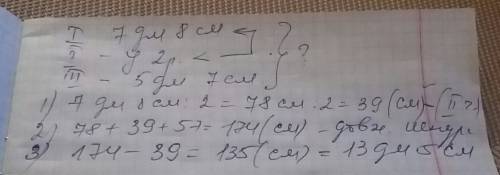 I 7 дм 8 см
II - у 2 р. < ?
III - 5 дм 7 см
1) 7 дм 8 см : 2 = 78 см : 2 = 39 (см) - (II ?)
2) 78 + 39 + 57 = 174 (см) - довж
3) 174 - 39 = 135 (см) = 13 дм 5 см